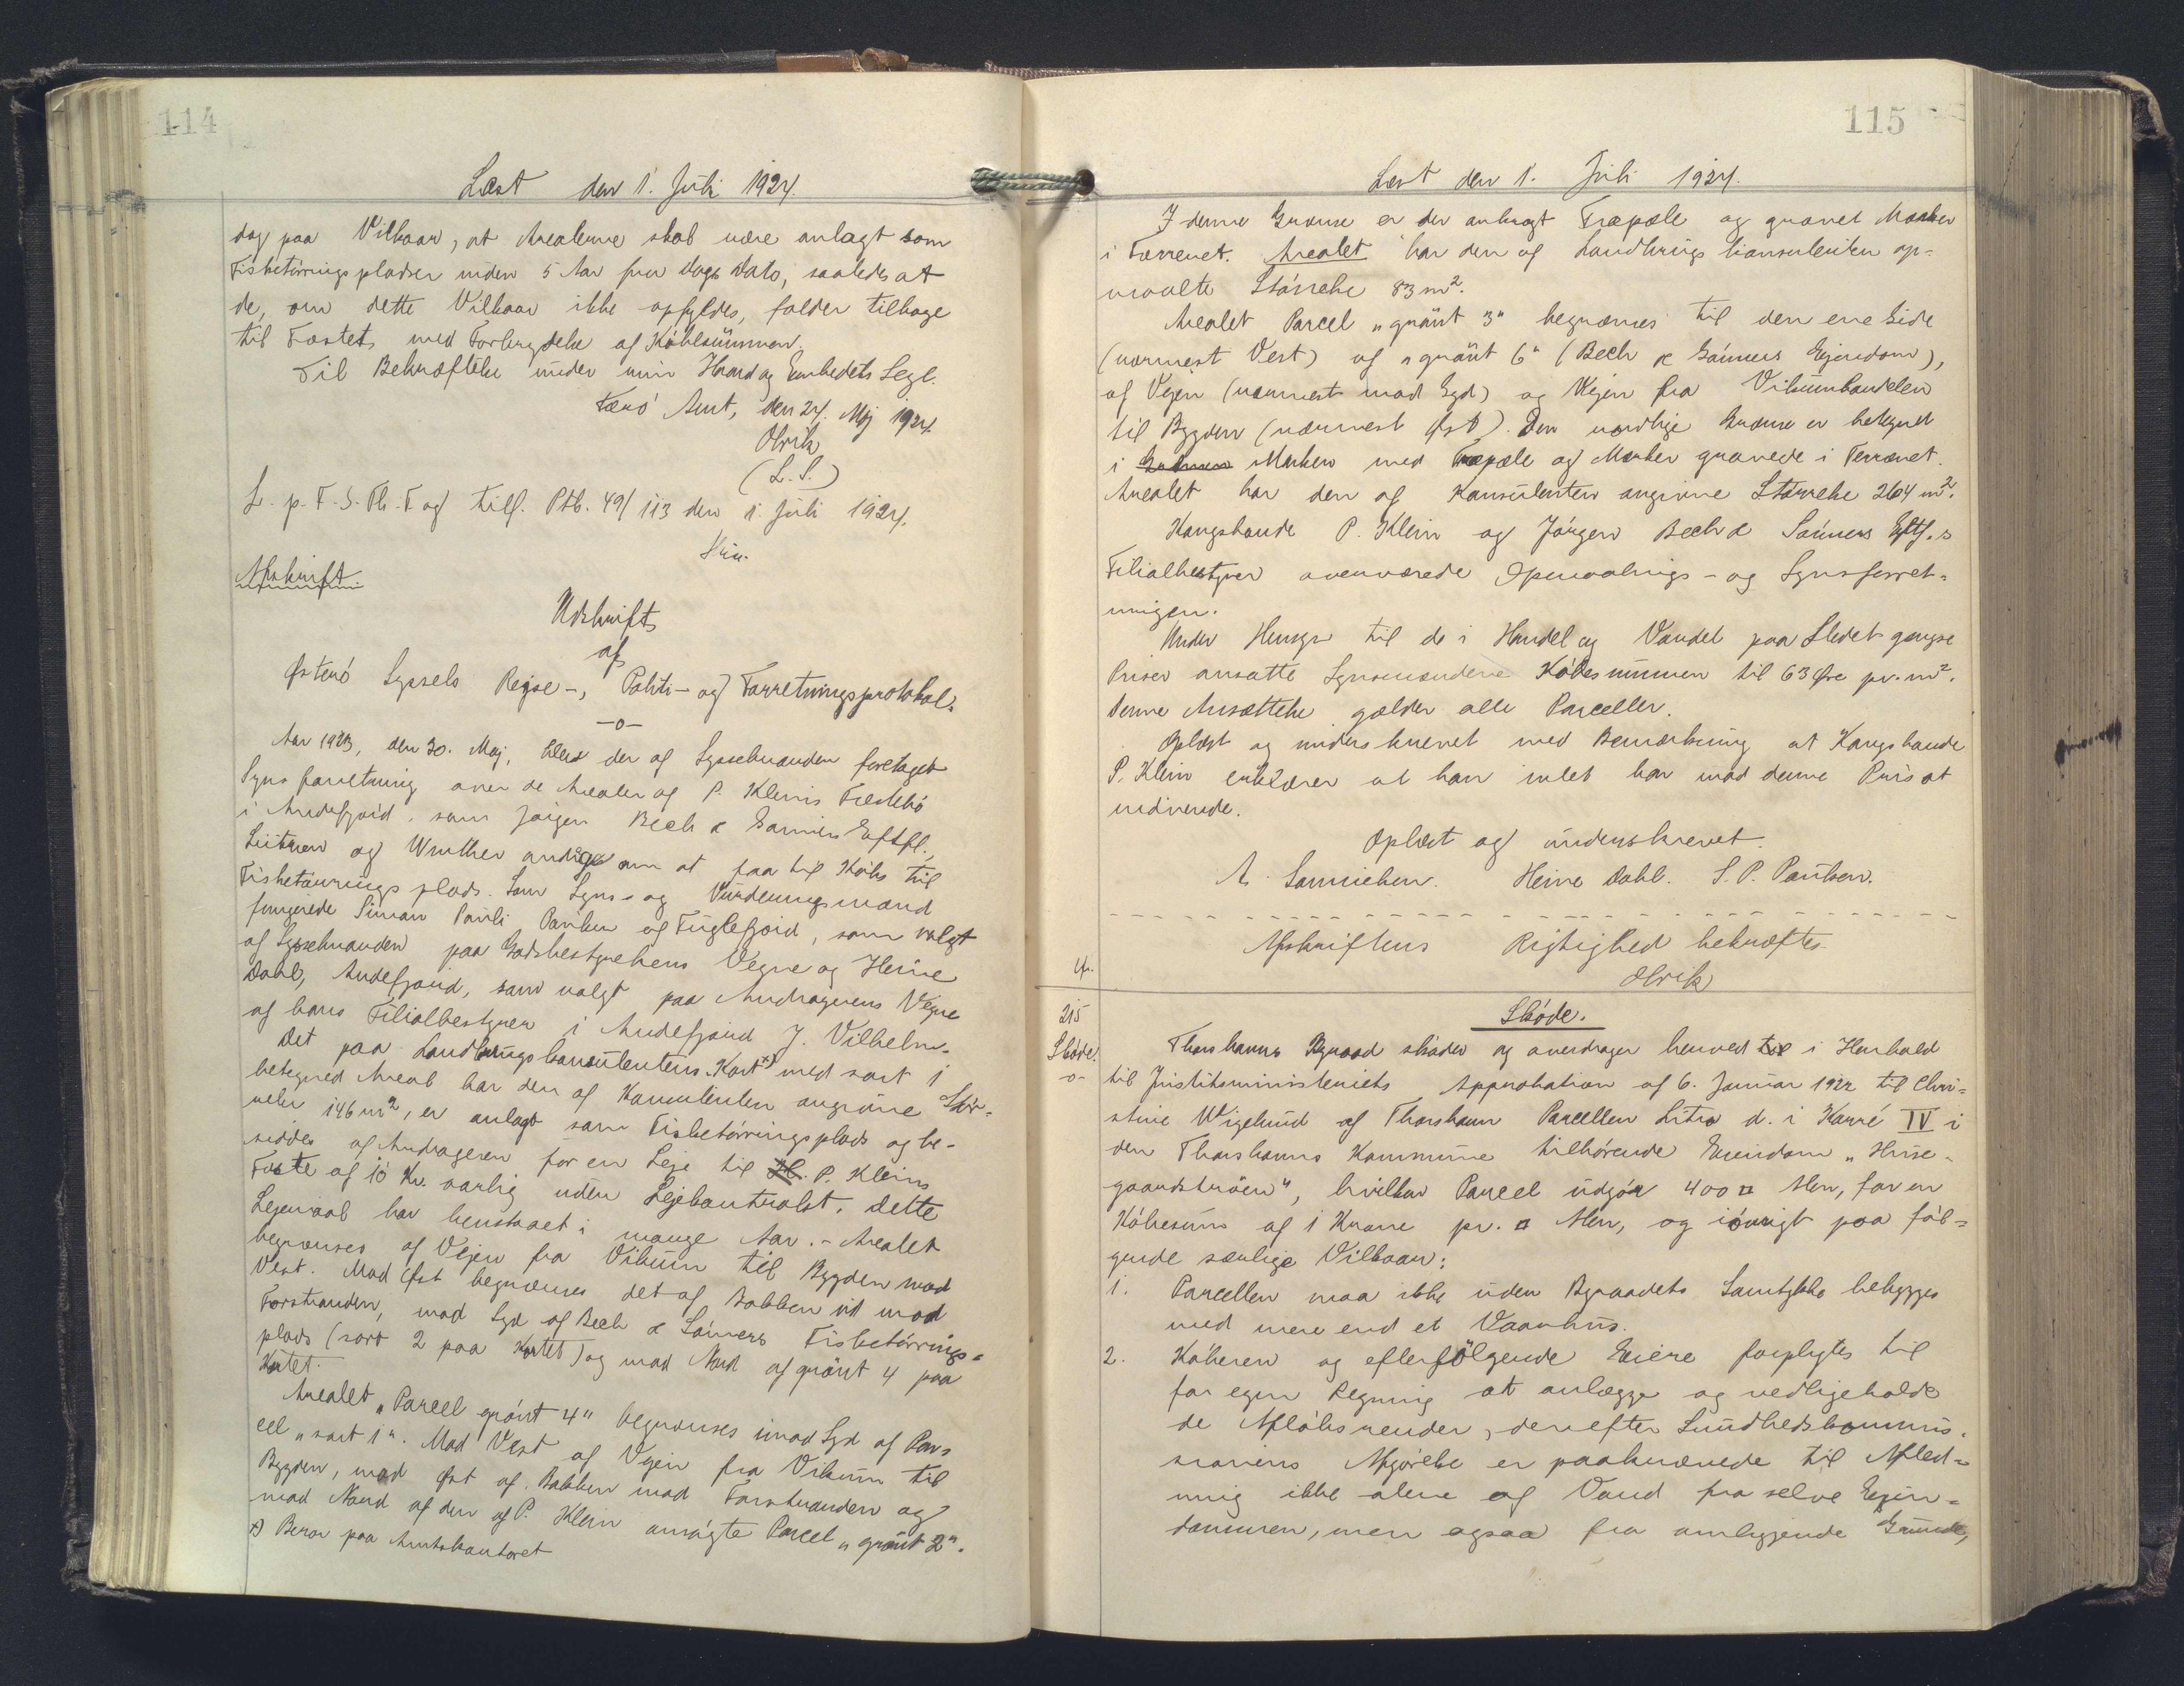 114
Læst den 1. Juli 1924.
dog paa Vilkaar, at Arealerne skal være anlagt som
Fisketörringspladser inden 5 Aar fra Dags Dato, saaledes at
de, om dette Vilkaar ikke opfyldes, falder tilbage
til Fæstet, med Fortrydelse af Köbesummen.
Til Bekræftelse under min Haand og Embedets Segl.
Færö Amt, den 24. Maj 1924.
Olrik
(L.S.)
L. p. F. S. Th. F og tilf. Ptb. 49/113 den 1. Juli 1924.
Afskrift.
Udskrift
af
Österö Syssels Rejse-, Politi- og Forretningsprotokol.
-o-
Aar 1923, den 30. Maj, blev der af Sysselmanden foretaget
Synsforretning over de Arealer af P. Kleins Fæstebö
i Andefjord, som Jörgen Bech & Sönners Eftfl.,
og andrager om at faa til Köbs til
Fisketörringsplads. Som Syns- og Vurderingsmænd
fungerede Simon Pauli Paulsen af Fuglefjord, som valgt
af Sysselmanden paa Godsbestyrelsens Vegne og Heine
Dahl, Andefjord, som valgt paa Andragerens Vegne
af hans Filialbestyrer i Andefjord J. Vilhelm.
Det paa Landbrugskonsulentens Kort x) med sort 1
betegned Areal har den af Konsulenten angivne Stör-
relse 146 m², er anlagt som Fisketörringsplads og be-
siddes af Andrageren for en Leje til P. Kleins
Fæste af 10 Kr. aarlig uden Lejekontrakt. Dette
Lejemaal har henstaaet i mange Aar. - Arealet
begrænses af Vejen fra Vikum til Bygden mod
Vest. Mod Öst begrænses det af Bakken ud mod
Forstranden, mod Syd af Bech & Sönners Fisketörrings-
plads (sort 2 paa Kortet) og mod Nord af grönt 4 paa
Kortet.
Arealet „Parcel grönt 4" begrænses imod Syd af Par-
cel „sort 1". Mod Vest af Vejen fra Vikum til
Bygden, mod Öst af Bakken mod Forstranden og
mod Nord af den af P. Klein ansögte Parcel „grönt 2".
x) Beror paa Amtskontoret
115
Læst den 1. Juli 1924.
I denne Grænse er der anbragt Træpæle og gravet Mærker
i Terrænet. Arealet har den af Landbrugskonsulenten op-
maalte Störrelse 83 m².
Arealet Parcel „grönt 3" begrænses til den ene Side
(nærmest Vest) af „grönt 6" (Bech & Sönners Ejendom),
af Vejen (nærmest mod Syd) og Vejen fra Vikumhandelen
til Bygden (nærmest Öst). Den nordlige Grænse er betegnet
i Marken med Træpæle og Mærker gravede i Terrænet.
Arealet har den af Konsulenten angivne Störrelse 264 m².
Kongsbonde P. Klein og Jörgen Bech & Sönners Eftf.s
Filialbestyrer overværede Opmaalnings- og Synsforret-
ningen.
Under Hensyn til de i Handel og Vandel paa Stedet gængse
Priser ansatte Synsmændene Köbesummen til 63 Öre pr. m².
Denne Ansættelse gælder alle Parceller.
Oplæst og underskrevet med Bemærkning at Kongsbonde
P. Klein erklærer at han intet har mod denne Pris at
indvende.
Oplæst og underskrevet.
A. Samuelsen. Heine Dahl. S. P. Paulsen.
Afskriftens Rigtighed bekræftes
Olrik
215
Sköde.
-o-
Sköde.
Thorshavns Byraad sköder og overdrager herved til i Henhold
til Justitsministeriets Approbation af 6. Januar 1922 til Chri-
stine Wigelund af Thorshavn Parcellen Litra d. i Karré IV i
den Thorshavns Kommune tilhörende Eiendom „Huse-
gaardströen", hvilken Parcel udgör 400 □ Alen, for en
Köbesum af 1 Krone pr. □ Alen, og iövrigt paa föl-
gende særlige Vilkaar:
1. Parcellen maa ikke uden Byraadets Samtykke bebygges
med mere end et Vaanhus.
2. Köberen og efterfölgende Eiere forpligtes til
for egen Regning at anlægge og vedligeholde
de Aflöbsrender, der efter Sundhedskommis-
sionens Afgörelse er paakrævede til Afled-
ning ikke alene af Vand fra selve Ejen-
dommen, men ogsaa fra omliggende Grunde,